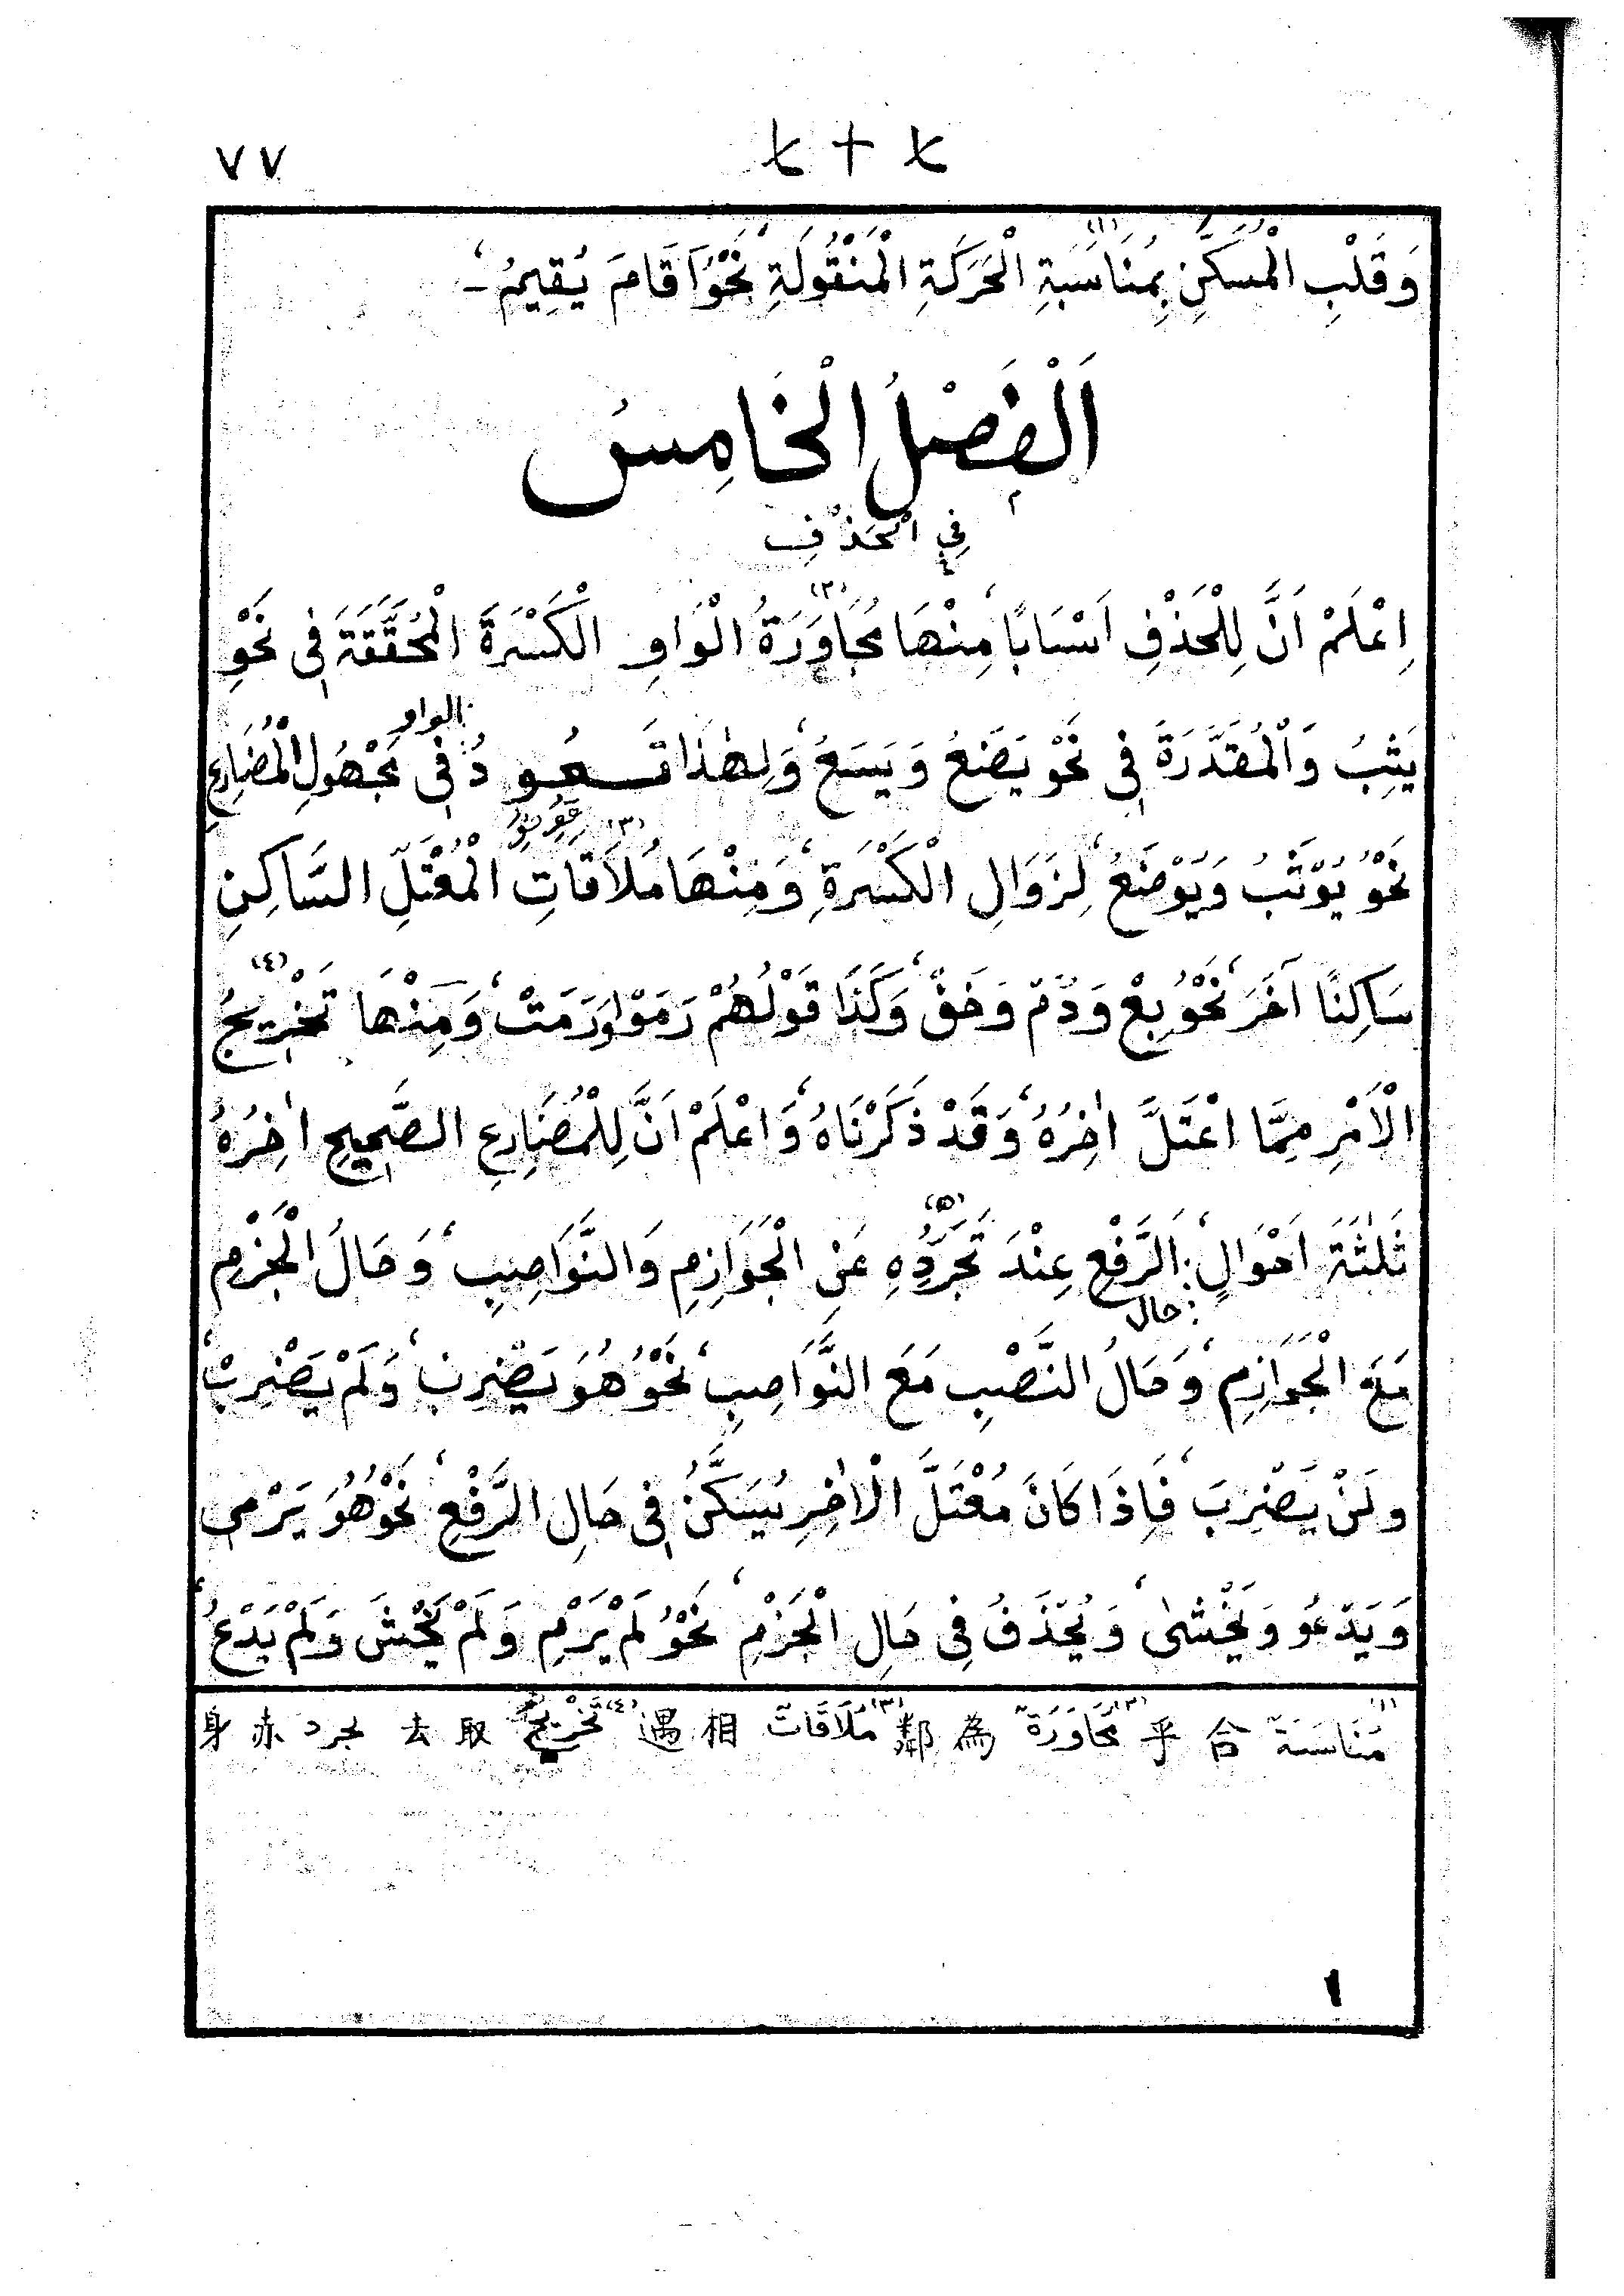 七十七 ٧٧
وَقَلْبِ الْمُسَكَّنِ بِمُنَاسَبَةِ (١) الْحَرَكَةِ الْمَنْقُولَةِ، نَحْوُ اَقَامَ يُقِيمُ،-
اَلْفَصْلُ الْخَامِسُ
فِي الْحَذْفِ
اِعْلَمْ اَنَّ لِلْحَذْفِ اَسْبَابًا، مِنْهَا مُجَاوَرَةُ (٢) الْوَاوِ الْكَسْرَةَ الْمُحَقَّقَةَ فِي نَحْوِ
يَثِبُ وَالْمُقَدَّرَةَ فِي نَحْوِ يَضَعُ وَيَسَعُ، وَلِهٰذَا تَعُودُ الواو فِي مَجْهُولِ الْمُضَارِعِ
نَحْوُ يُوْثَبُ وَيُوْضَعُ، لِزَوَالِ الْكَسْرَةِ، وَمِنْهَا مُلَاقَاتِ (٣) الْمُعْتَلِّ السَّاكِنِ
سَاكِنًا آخَرَ، نَحْوُ بِعْ وَدُمْ وَخَفْ، وَكَذَا قَوْلُهُمْ رَمَوْا وَرَمَتْ، وَمِنْهَا تَخْرِيجُ (٤)
الْاَمْرِ مِمَّا اعْتَلَّ اٰخِرُهُ، وَقَدْ ذَكَرْنَاهُ، وَاعْلَمْ اَنَّ لِلْمُضَارِعِ الصَّحِيحِ اٰخِرُهُ
ثَلٰثَةَ اَحْوَالٍ، حال اَلرَّفْعِ عِنْدَ تَجَرُّدِهِ (٥) عَنِ الْجَوَازِمِ وَالنَّوَاصِبِ، وَحَالُ الْجَزْمِ
مَعَ الْجَوَازِمِ، وَحَالُ النَّصْبِ مَعَ النَّوَاصِبِ، نَحْوُ هُوَ يَضْرِبُ، وَلَمْ يَضْرِبْ،
ولَنْ يَضْرِبَ، فَاِذَا كَانَ مُعْتَلَّ الْاٰخِرِ يُسَكَّنُ فِي حَالِ الرَّفْعِ، نَحْوُ هُوَ يَرْمِي
وَيَدْعُو وَيَخْشٰى، وَيُحْذَفُ فِي حَالِ الْجَزْمِ، نَحْوُ لَمْ يَرْمِ وَلَمْ يَخْشَ وَلَمْ يَدْعُ،
(١) مُنَاسَبَة 合乎 (٢) مُجَاوَرَة 為鄰 (٣) مُلَاقَات 相遇 (٤) تَخْرِيج 取去 تجرد 赤身
١